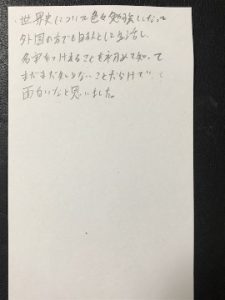 ・世界史について色々勉強になって
外国の方でも日本人として生活し、
名字をつけることも初めて知って
まだまだ知らないことだらけで
面白いなと思いました。